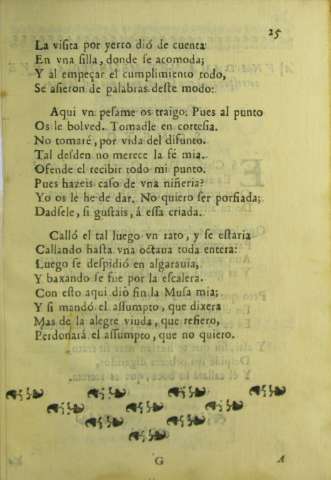 25
La visita por yerro dió de cuenta
En vna silla, donde se acomoda;
Y al empeçar el cumplimiento todo,
Se asieron de palabras deste modo:
Aqui vn pesame os traigo. Pues al punto
Os le bolved. Tomadle en cortesia.
No tomaré, por vida del difunto.
Tal desden no merece la fé mia.
Ofende el recibir todo mi punto.
Pues hazeis caso de vna niñeria?
Yo os le he de dar. No quiero ser porfiada;
Dadsele, si gustais, á essa criada.
Calló el tal luego vn rato, y se estaria
Callando hasta vna octava toda entera:
Luego se despidió en algaravia,
Y baxando se fue por la escalera.
Con esto aqui dió fin la Musa mia;
Y si mandó el assumpto, que dixera
Mas de la alegre viuda, que refiero,
Perdonará el assumpto, que no quiero.
G A